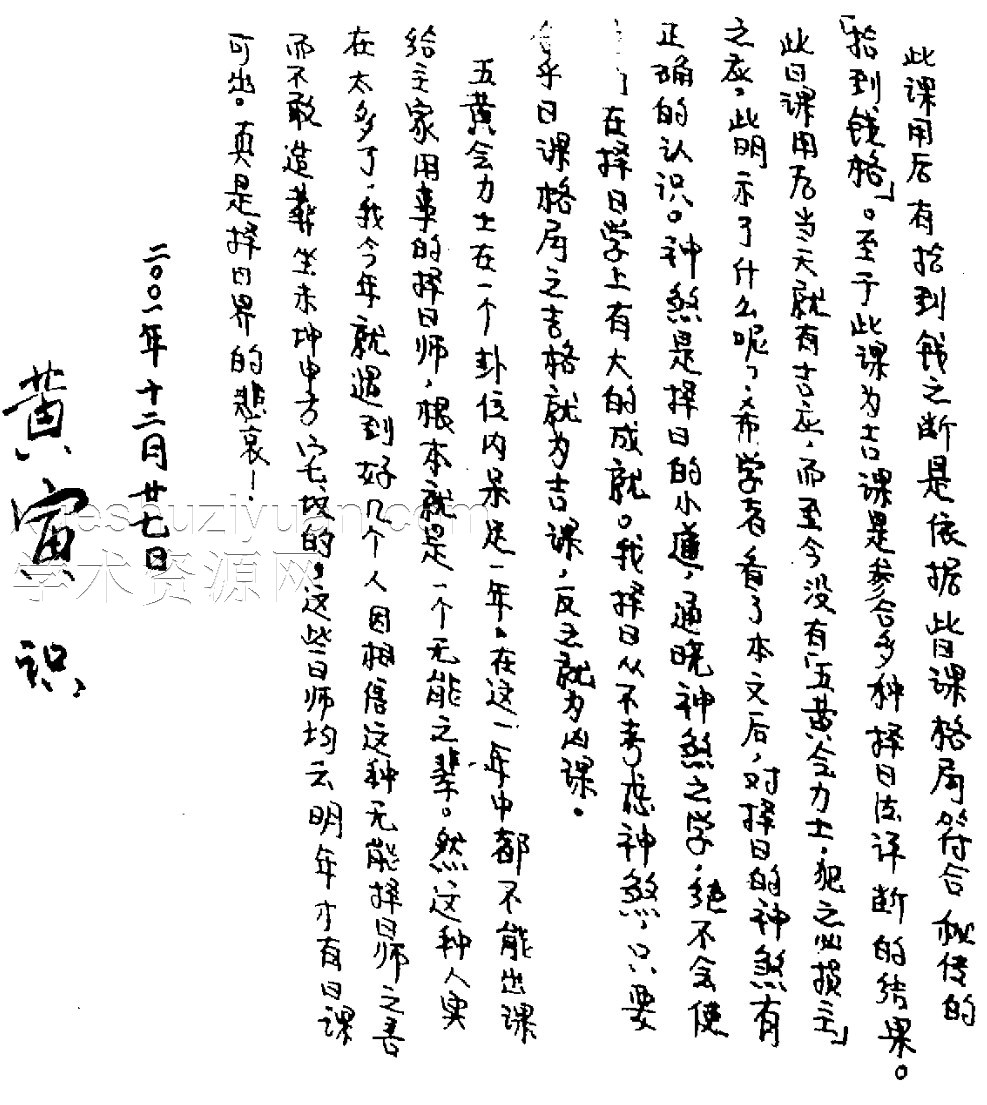 此课用后有拾到钱之断是依据此日课格局符合秘传的
「拾到钱格」。至于此课为吉课是参合多种择日法评断的结果。
此日课用后当天就有吉应，而至今没有「五黄会力士，犯之必损主」
之应。此明示了什么呢？希学者看了本文后，对择日的神煞有
正确的认识。神煞是择日的小道，通晓神煞之学，绝不会使
在择日学上有大的成就。我择日从不考虑神煞，只要
合乎日课格局之吉格就为吉课，反之就为凶课。
五黄会力士在一个卦位内呆足一年。在这一年中都不能出课
给主家用事的择日师，根本就是一个无能之辈。然这种人实
在太多了，我今年就遇到好几个人因相信这种无能择日师之言
而不敢造葬坐未坤申方宅坟的。这些日师均云明年才有日课
可出。真是择日界的悲哀！
二〇〇一年十二月廿七日
黄寅识
eshuziyuan.com
学术资源网